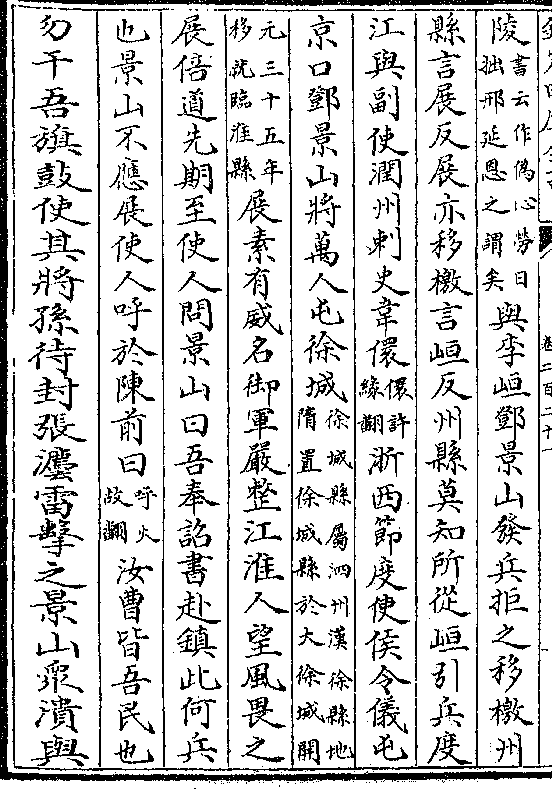 卷二百二十一
陵書云作偽心勞日拙邢延恩之謂矣與李峘鄧景山發兵拒之移檄州
縣言展反展亦移檄言峘反州縣莫知所從峘引兵度
江與副使潤州刺史韋儇儇許緣翻浙西節度使侯令儀屯
京口鄧景山將萬人屯徐城徐城縣屬泗州漢徐縣地隋置徐城縣於大徐城開
元三十五年移就臨淮縣展素有威名御軍嚴整江淮人望風畏之
展倍道先期至使人問景山曰吾奉詔書赴鎮此何兵
也景山不應展使人呼於陳前曰呼火故翻汝曹皆吾民也
勿干吾旗鼓使其將孫待封張灋雷擊之景山衆潰與